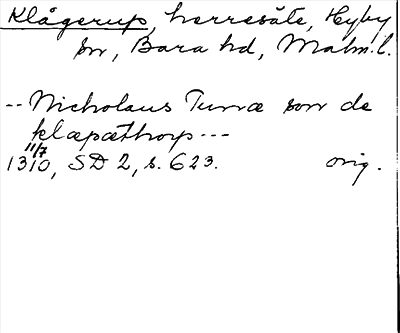 Klågerup, herresäte, Hyby
sn, Bara hd, Malm.l.
-- Nicholaus Turræ son de
klæpæthorp ---
11/7
1310, SD 2, s. 623. orig.